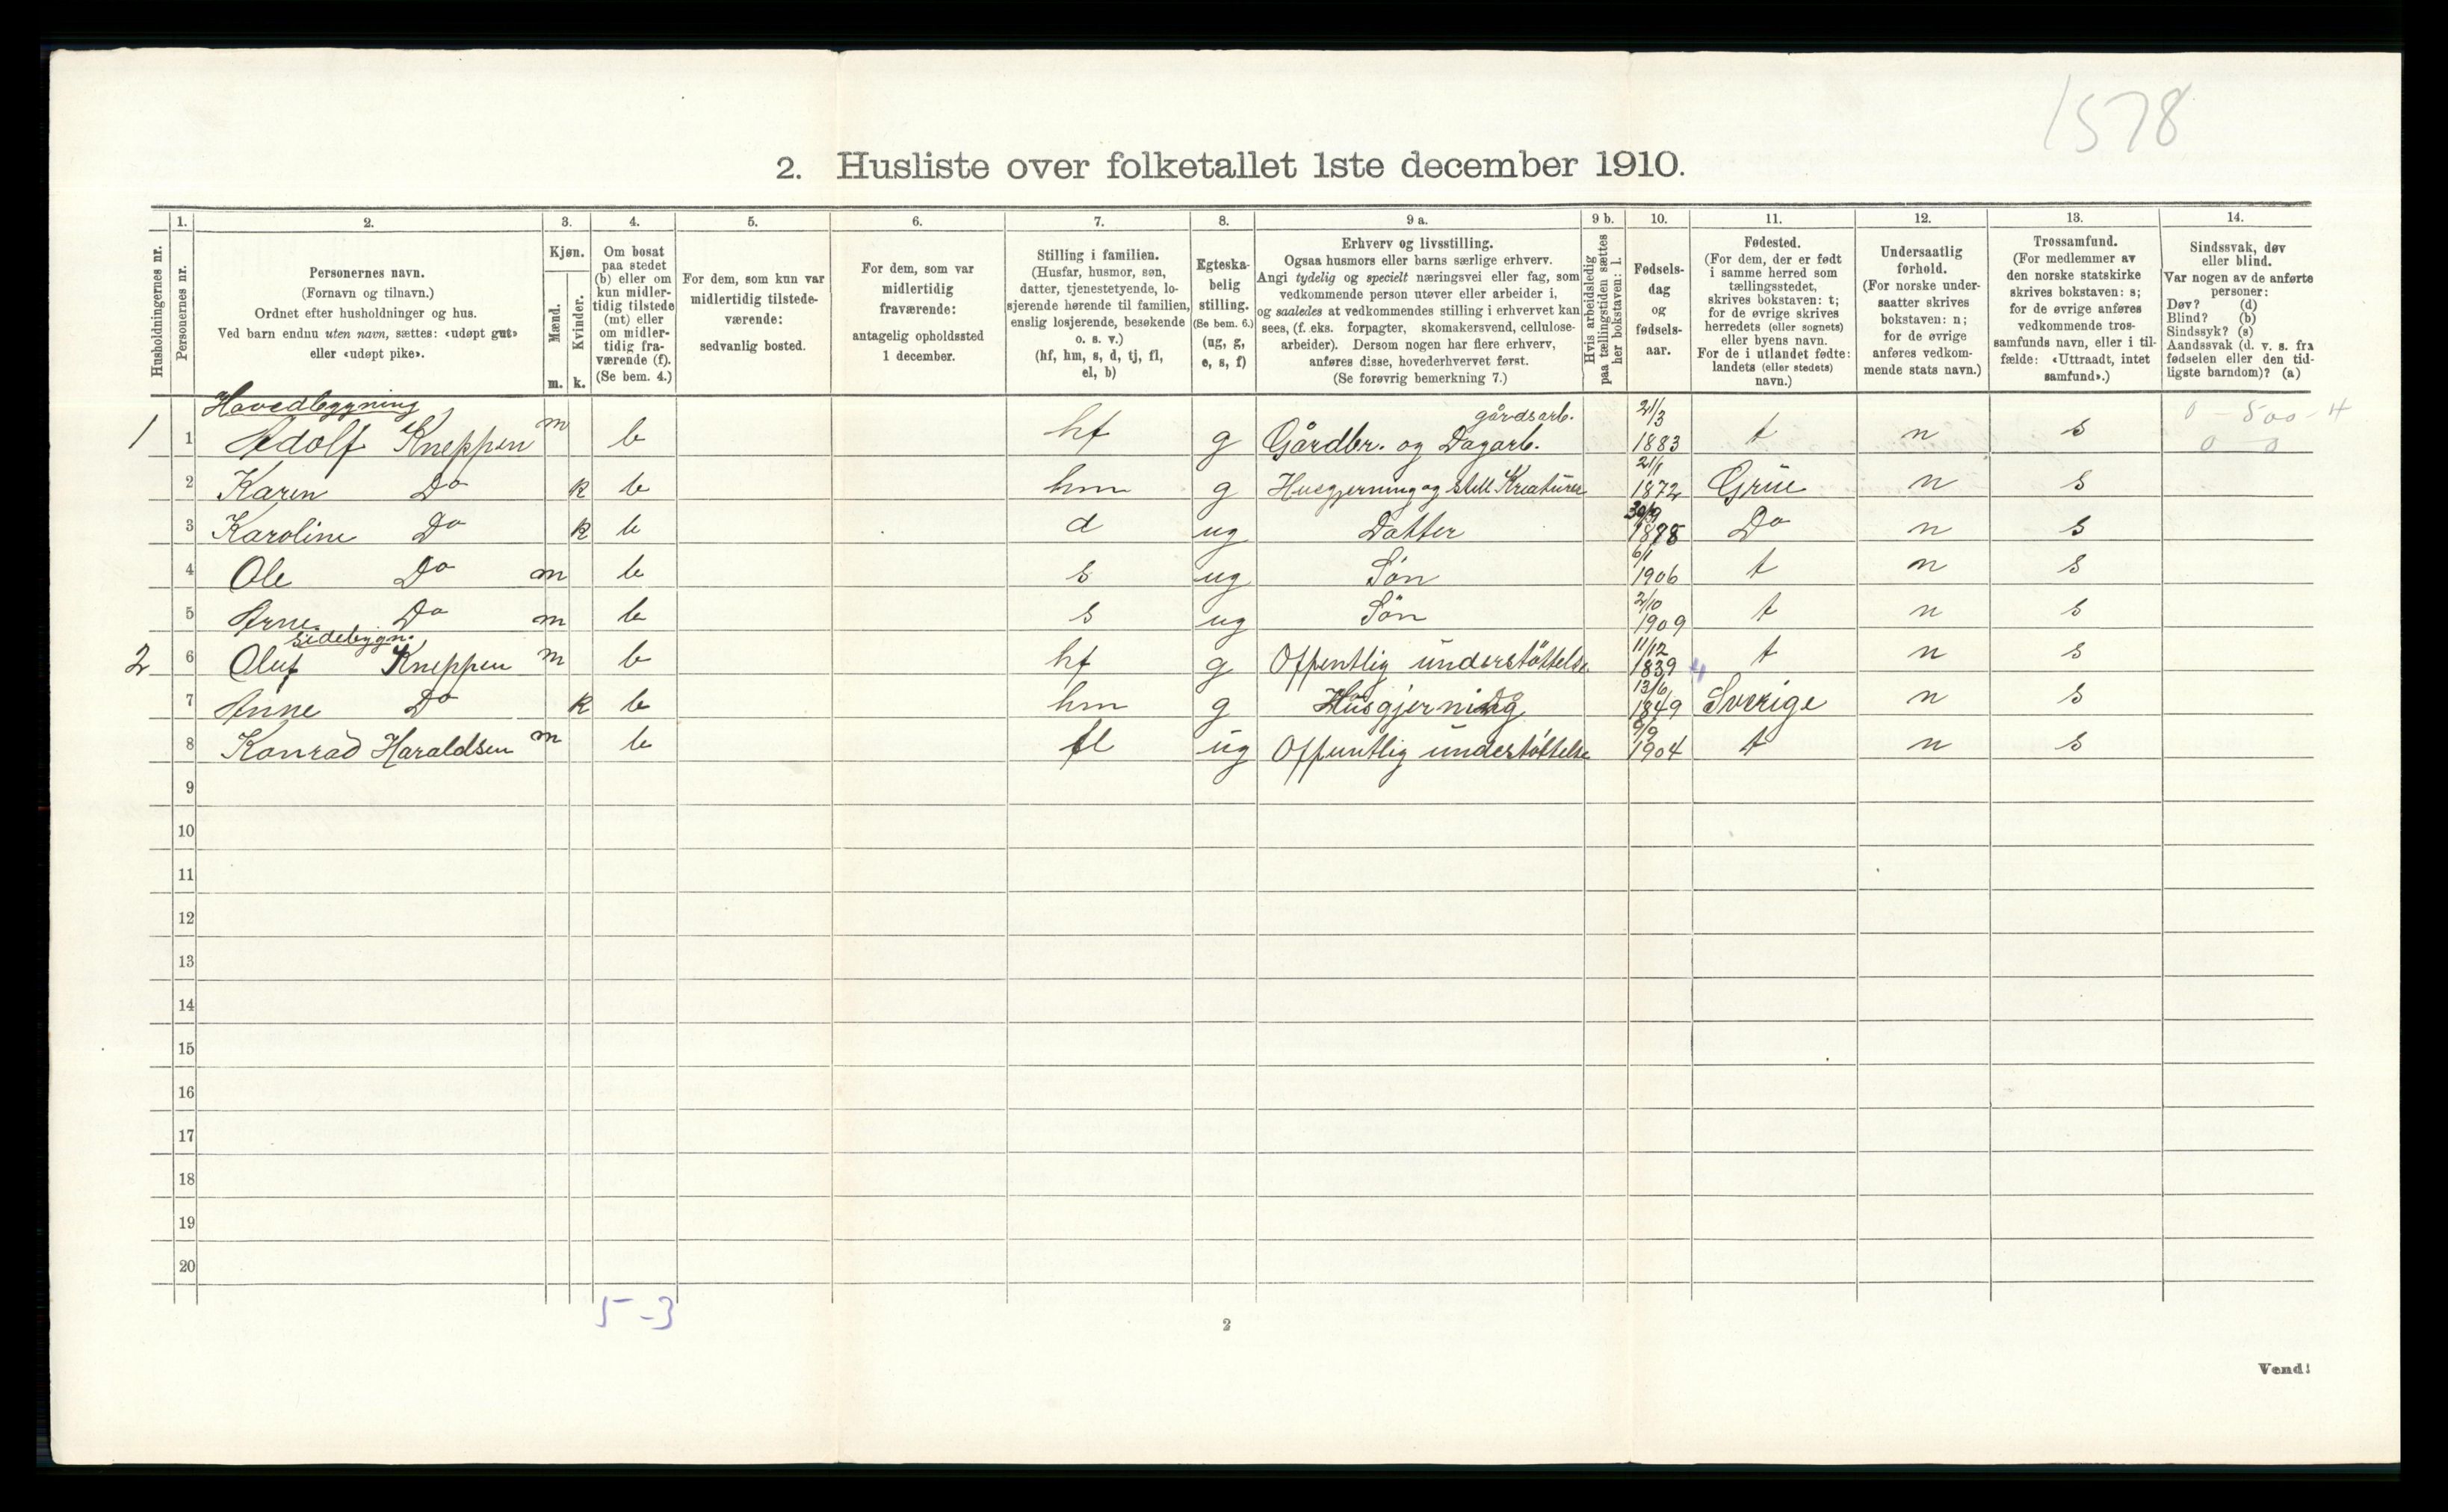 1578
2. Husliste over folketallet 1ste december 1910.
Husholdningernes nr.
1. Personernes nr.
2. Personernes navn. (Fornavn og tilnavn.) Ordnet efter husholdninger og hus. Ved barn endnu uten navn, sættes: «udøpt gut» eller «udøpt pike».
3. Kjøn. Mænd. m. Kvinder. k.
4. Om bosat paa stedet (b) eller om kun midlertidig tilstede (mt) eller om midlertidig fraværende (f). (Se bem. 4.)
5. For dem, som kun var midlertidig tilstedeværende: sedvanlig bosted.
6. For dem, som var midlertidig fraværende: antagelig opholdssted 1 december.
7. Stilling i familien. (Husfar, husmor, søn, datter, tjenestetyende, losjerende hørende til familien, enslig losjerende, besøkende o. s. v.) (hf, hm, s, d, tj, fl, el, b)
8. Egteskabelig stilling. (Se bem. 6.) (ug, g, e, s, f)
9 a. Erhverv og livsstilling. Ogsaa husmors eller barns særlige erhverv. Angi tydelig og specielt næringsvei eller fag, som vedkommende person utøver eller arbeider i, og saaledes at vedkommendes stilling i erhvervet kan sees, (f. eks. forpagter, skomakersvend, cellulosearbeider). Dersom nogen har flere erhverv, anføres disse, hovederhvervet først. (Se forøvrig bemerkning 7.)
9 b. Hvis arbeidsledig paa tællingstiden sættes her bokstaven: l.
10. Fødselsdag og fødselsaar.
11. Fødested. (For dem, der er født i samme herred som tællingsstedet, skrives bokstaven: t; for de øvrige skrives herredets (eller sognets) eller byens navn. For de i utlandet fødte: landets (eller stedets) navn.)
12. Undersaatlig forhold. (For norske undersaatter skrives bokstaven: n; for de øvrige anføres vedkommende stats navn.)
13. Trossamfund. (For medlemmer av den norske statskirke skrives bokstaven: s; for de øvrige anføres vedkommende trossamfunds navn, eller i tilfælde: «Uttraadt, intet samfund».)
14. Sindssvak, døv eller blind. Var nogen av de anførte personer: Døv? (d) Blind? (b) Sindssyk? (s) Aandssvak (d. v. s. fra fødselen eller den tidligste barndom)? (a)
Hovedbygning gårdsarb. 0 500-4
1 1 Adolf Kneppen m b hf g Gårdbr. og Dagarb. 21/3 1883 t n s 0 0
2 Karen Do k b hm g Husgjerning og stell Kreaturer 21/1 1872 Grue n s
3 Karoline Do k b d ug Datter 30/9 1898 Do n s
4 Ole Do m b s ug Søn 6/1 1906 t n s
5 Arne Do m b s ug Søn 2/10 1909 t n s
sidebygn.
2 6 Oluf Kneppen m b hf g Offentlig understøttelse 11/12 1839 4 t n s
7 Anne Do k b hm g Husgjerning 13/6 1849 Sverige n s
8 Konrad Haraldsen m b fl ug Offentlig understøttelse 9/9 1904 t n s
9
10
11
12
13
14
15
16
17
18
19
20
5-3
2
Vend!